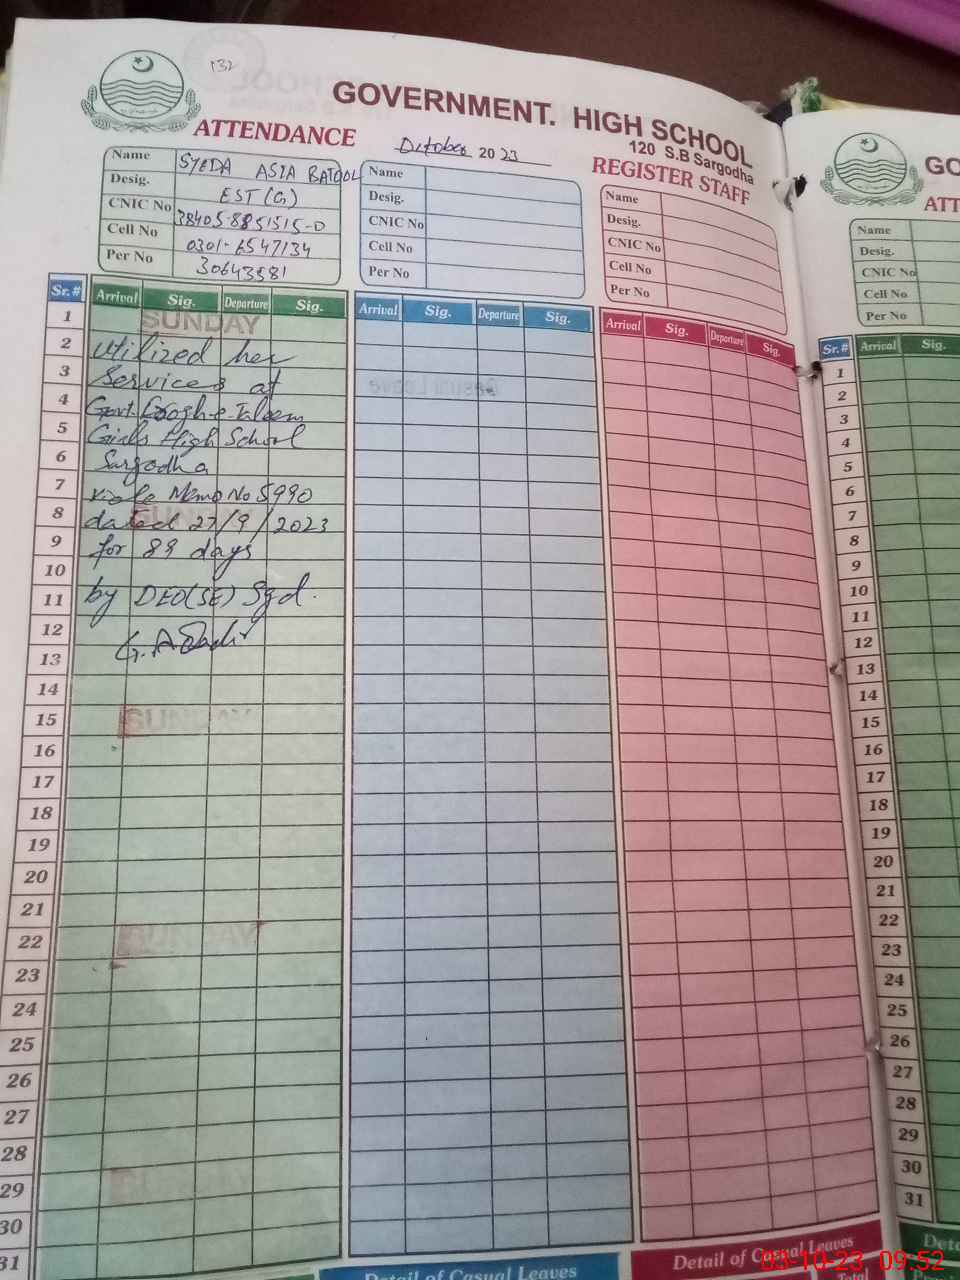 132
GOVERNMENT. HIGH SCHOOL
120 S.B Sargodha
ATTENDANCE
October 2023
REGISTER STAFF
Name SYEDA ASIA BATOOL
Desig. EST (G)
CNIC No 38405-8851515-0
Cell No 0301-6547134
Per No 30643581
Name
Desig.
CNIC No
Cell No
Per No
Name
Desig.
CNIC No
Cell No
Per No
Sr.# Arrival Sig. Departure Sig. Arrival Sig. Departure Sig. Arrival Sig. Departure Sig.
1 SUNDAY
2 utilized her
3 Services at
4 Govt. Taleem
5 Girls High School
6 Sargodha
7 Memo No 5990
8 SUNDAY dated 27/9/2023
9 for 89 days
10
11 by DEO(SE) Sgd.
12
13
14
15 SUNDAY
16
17
18
19
20
21
22 SUNDAY
23
24
25
26
27
28
29 SUNDAY
30
31
Detail of Casual Leaves
Detail of Casual Leaves
GO
ATT
Name
Desig.
CNIC No
Cell No
Per No
Sr.# Arrival Sig.
1
2
3
4
5
6
7
8
9
10
11
12
13
14
15
16
17
18
19
20
21
22
23
24
25
26
27
28
29
30
31
Deta
03-10-23 09:52